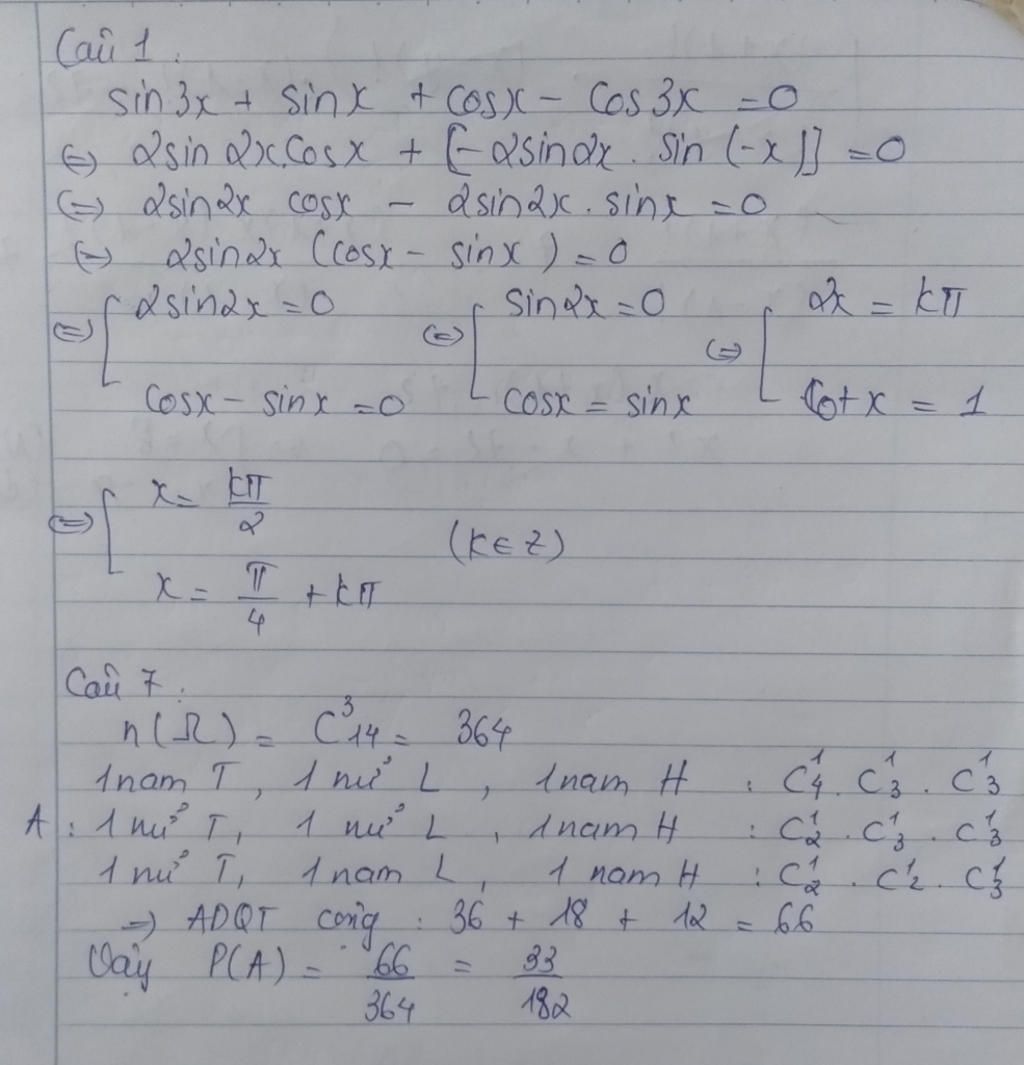 Câu 1.
sin3x + sinx + cosx - cos3x = 0
⇔ 2sin2x.cosx + [-2sin2x . sin(-x)] = 0
⇔ 2sin2x cosx - 2sin2x . sinx = 0
⇔ 2sin2x (cosx - sinx) = 0
⇔ [ 2sin2x = 0 ⇔ [ sin2x = 0 ⇔ [ 2x = kπ
cosx - sinx = 0 cosx = sinx cotx = 1
⇔ [ x = kπ/2
(k∈Z)
x = π/4 + kπ
Câu 7.
n(Ω) = C³₁₄ = 364
1 nam T, 1 nữ L, 1 nam H : C¹₄ . C¹₃ . C¹₃
A : 1 nữ T, 1 nữ L, 1 nam H : C¹₂ . C¹₃ . C¹₃
1 nữ T, 1 nam L, 1 nam H : C¹₂ . C¹₂ . C¹₃
⇒ ADQT cộng : 36 + 18 + 12 = 66
Vậy P(A) = 66/364 = 33/182